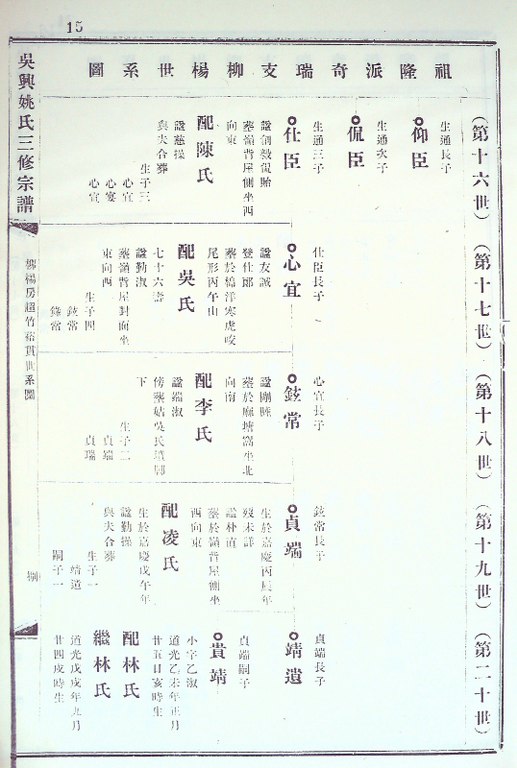 15
祖隆派奇瑞支柳楊世系圖
吳興姚氏三修宗譜
(第十六世)
生通長子
仰臣
生通次子
侃臣
生通三子
仕臣
葬嶺背屋側坐西
向東
配陳氏
諡慈操
與夫合葬
生子三
心宜
心宴
心宣
(第十七世)
仕臣長子
心宜
諡友誠
登仕郎
尾形丙午山
配吳氏
七十六壽
諡勤淑
葬嶺背屋對面坐
東向西
生子四
鉉常
(第十八世)
心宜長子
鉉常
諡剛睦
葬於麻塘窩坐北
向南
配李氏
諡端淑
下
生子二
貞端
貞瑞
(第十九世)
鉉常長子
貞端
生於嘉慶丙辰年
歿未詳
諡朴直
葬於嶺背屋側坐
西向東
配凌氏
生於嘉慶戊午年
諡勤操
與夫合葬
生子一
靖遺
嗣子一
(第二十世)
貞端長子
靖遺
貞端嗣子
貴靖
小字乙淑
道光乙未年正月
廿五日亥時生
配林氏
繼林氏
道光戊戌年九月
廿四戌時生